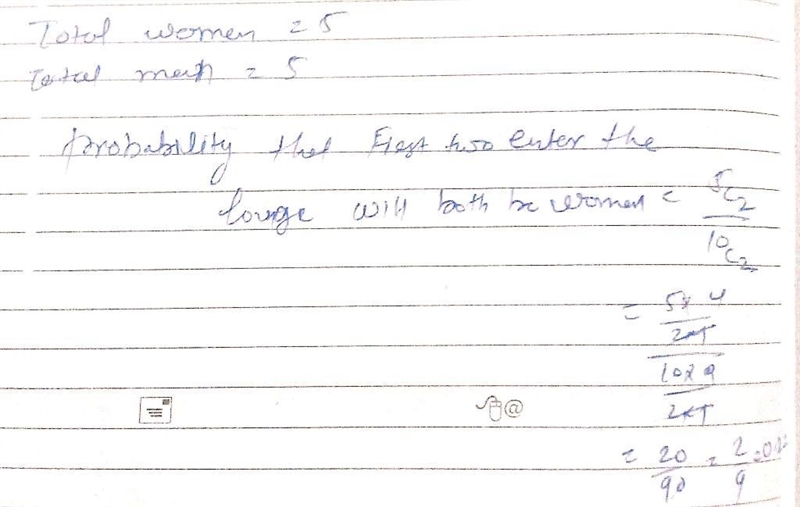 Total women = 5
Total men = 5
Probability that First two enter the
lounge will both be women = 5C2
10C2
= 5x4
2x1
10x9
2x1
= 20 = 2 =
90 9
@